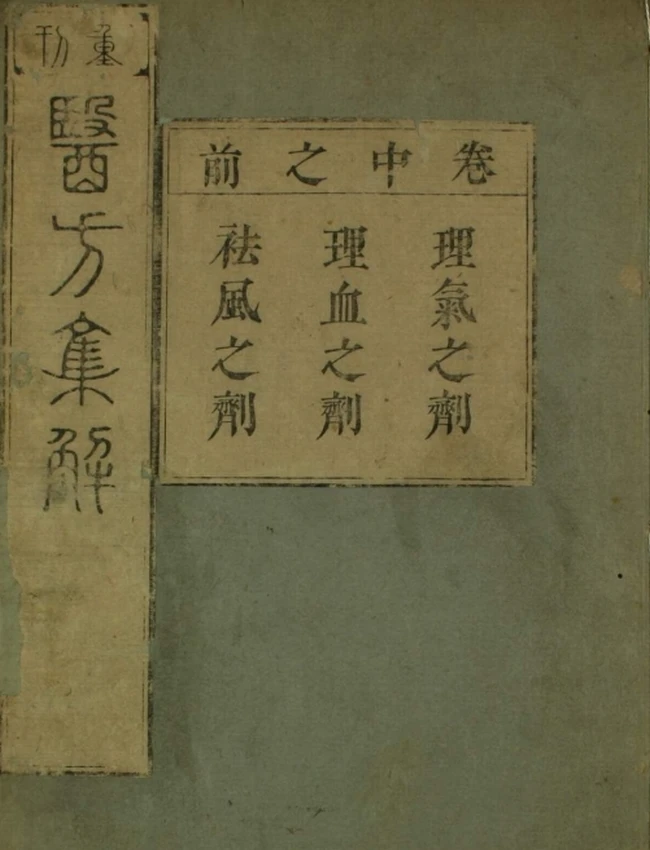 重刊
醫方集解
卷中之前
理氣之劑
理血之劑
袪風之劑